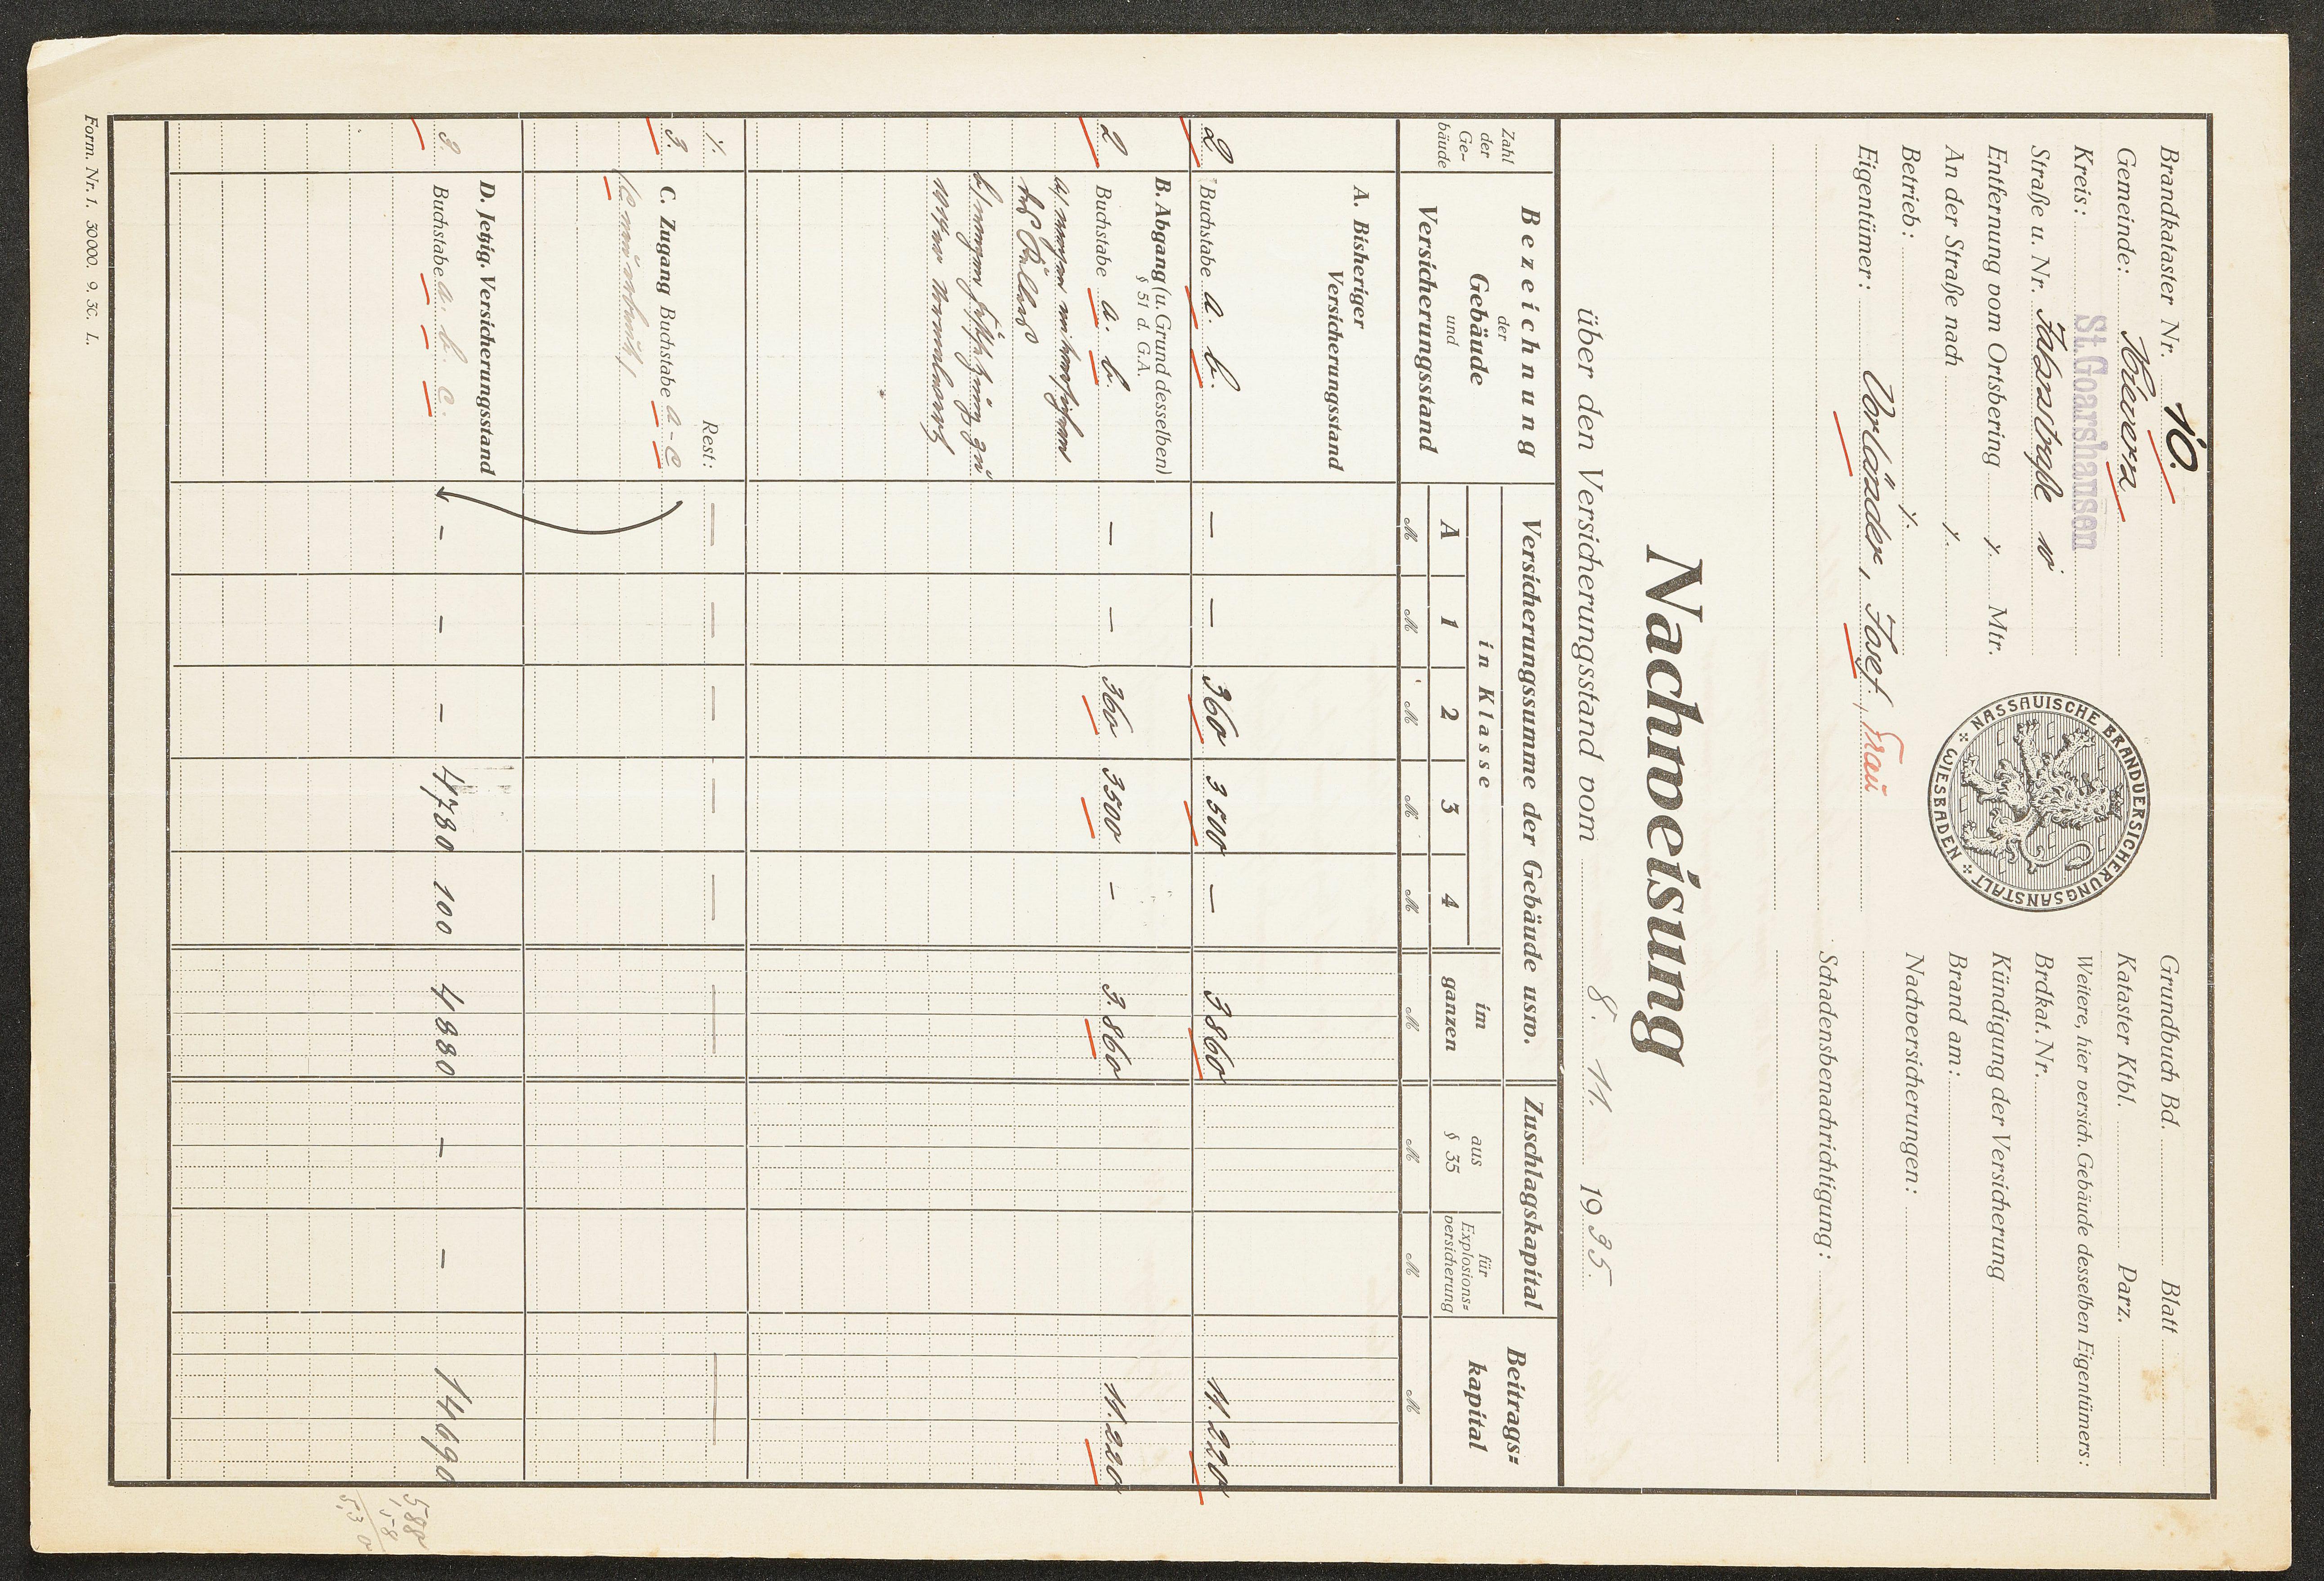 Brandkataster Nr. 10.
Gemeinde: Kevern
Kreis: St. Goarshausen
Straße u. Nr.
Entfernung vom Ortsbering ./. Mtr.
An der Straße nach ./.
Betrieb: ./.
Eigentümer: Vorländer, Josef, Frau
NASSAUISCHE BRANDVERSICHERUNGSANSTALT
WIESBADEN
Grundbuch Bd. Blatt
Kataster Ktbl. Parz.
Weitere, hier versich. Gebäude desselben Eigentümers:
Brdkat. Nr.
Kündigung der Versicherung
Brand am:
Nachversicherungen:
Schadensbenachrichtigung:
Nachweisung
über den Versicherungsstand vom 8. 11. 1935.
Zahl der Ge-bäude
Bezeichnung
der
Gebäude
und
Versicherungsstand
Versicherungssumme der Gebäude usw.
in Klasse
A 1 2 3 4
im ganzen
Zuschlagskapital
aus § 35
für Explosions=versicherung
Beitrags=kapital
M M M M M M M M M
A. Bisheriger
Versicherungsstand
2 Buchstabe a. b. — — 360 3500 — 3860 11.220
B. Abgang (u. Grund desselben)
§ 51 d. G.A.
2 Buchstabe a. b. — — 360 3500 — 3.860 11.220
a) wegen
des Stalles
b) wegen
1914er
./. Rest: — — — — — — —
3. C. Zugang Buchstabe a-c
D. Jetzig. Versicherungsstand
3 Buchstabe a. b. c. — — — 4780 100 4880 — — 14690
588
58
530
Form. Nr. 1. 30000. 9. 30. L.